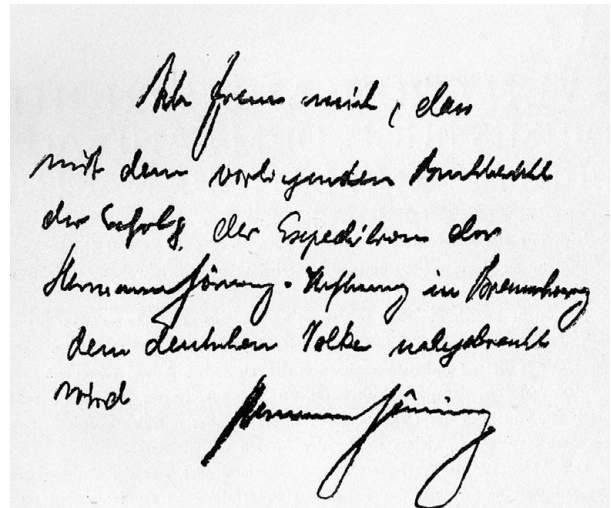 Ich freue mich, dass
mit dem vorliegenden
der Erfolg der Expedition der
Hermann Göring-Stiftung in Braunschweig
dem deutschen Volke nahgebracht
wird
Hermann Göring